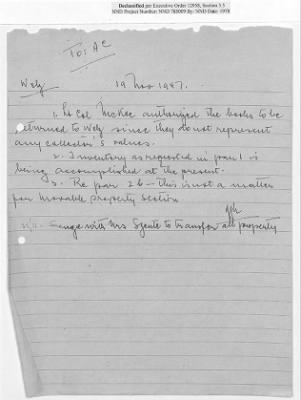 Declassified per Executive Order 12958, Section 3.5
NND Project Number: NND 785009 By: NND Date: 1978
To: AC
19 Nov 1947.
1. Lt Col McKee authorized the books to be
returned to since they do not represent
any collector's values.
2. Inventory as requested in para 1 is
being accomplished at the present.
3. Re par 2b — this is not a matter
for Movable property Section
with Mrs to transfer all property